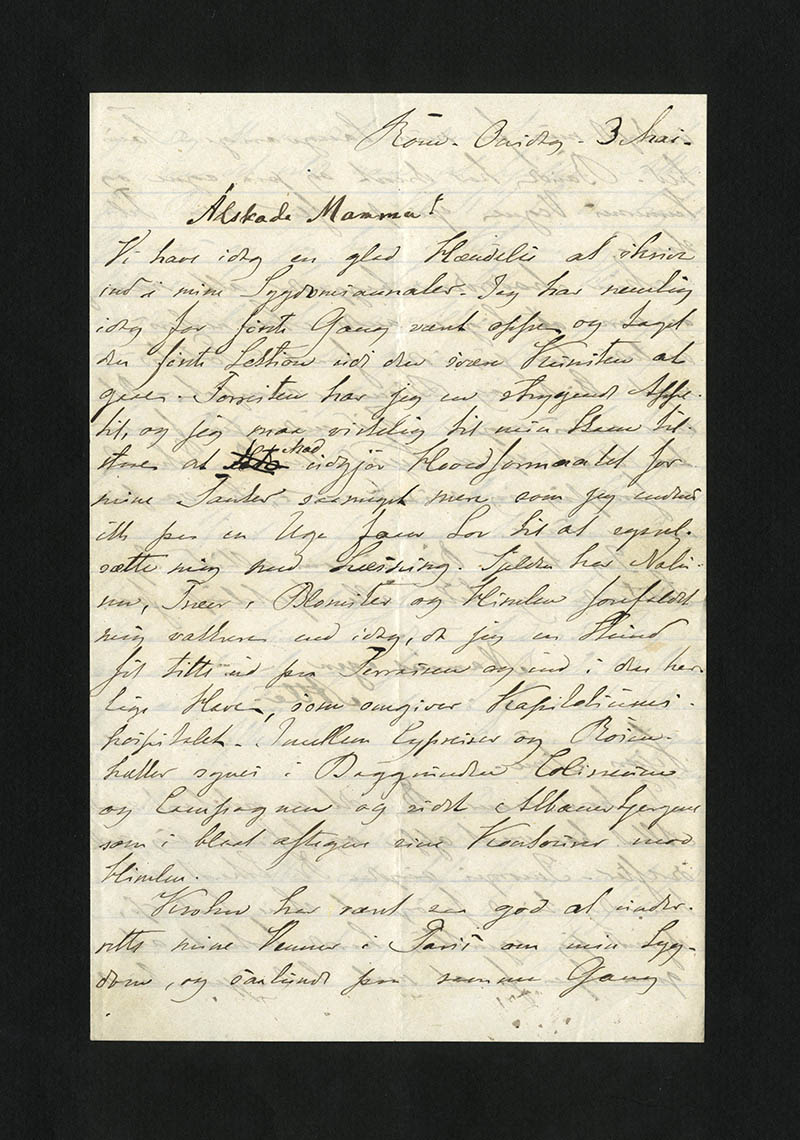 Rom. Onsdag. 3 Mai.
Älskade Mamma!
Vi have idag en glad Hændelse at skrive
ind i mine Sygdomsannaler. Jeg har nemlig
idag for förste Gang vært oppe og taget
den förste Lektion udi den svære Kunsten at
gaae. Forresten har jeg en strygende Appe-
tit, og jeg maa virkelig til min Skam til-
staae at Mad udgjör Hovedformaalet for
mine Tanker saameget mere som jeg endnu
itte paa en Uge faaer Lov til at syssel-
sætte mig med Læsning. Sjelden har Natu-
ren, Træer, Blomster og Himlen forefaldet
mig vakkrere end idag, da jeg en Stund
fik titte ud paa Terrassen og ind i den her-
lige Have, som omgiver Kapitoliums-
hospitalet. Imellem Cypresser og Rosen-
hække synes i Baggrunden Coliseum
og Campagnen og sidst Albanerbjergene
som i blaat aftegne sine Konturer mod
Himlen.
Krohn har vært saa god at under-
rette mine Venner i Paris om min Syg-
dom, og saalunde paa samme Gang